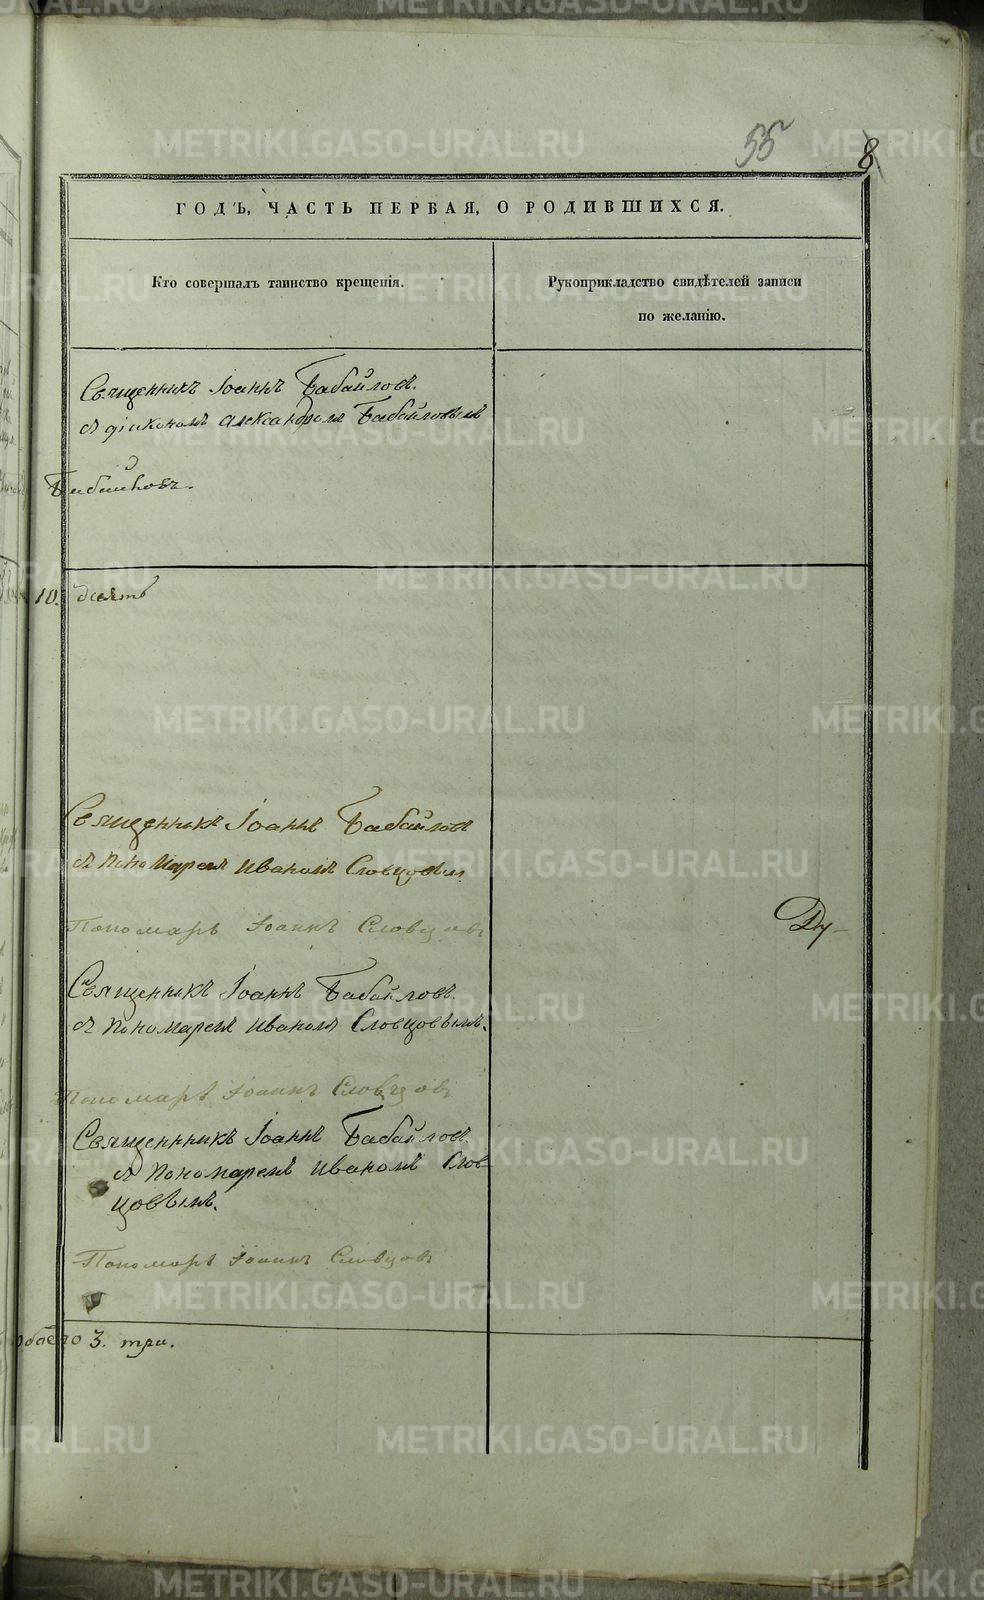 55
8
ГОДЪ, ЧАСТЬ ПЕРВАЯ, О РОДИВШИХСЯ.
Кто совершалъ таинство крещенія.
Рукоприкладство свидѣтелей записи
по желанію.
Священникъ Іоаннъ Бабайловъ.
съ діякономъ Александромъ Бабайловымъ
10. десять
Священникъ Іоаннъ Бабайловъ
съ пономаремъ Иваномъ Словцовым
Пономарь Іоаннъ Словцовъ
Ду-
Священникъ Іоаннъ Бабайловъ.
съ пономаремъ Иваномъ Словцовымъ.
Пономарь Іоаннъ Словцовъ
Священникъ Іоаннъ Бабайловъ.
съ пономаремъ Иваномъ Слов
цовымъ.
Пономарь Іоаннъ Словцовъ
обоего 3. три.
METRIKI.GASO-URAL.RU